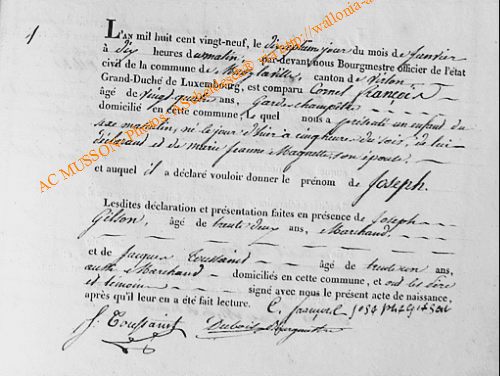 1
L'AN mil huit cent vingt-neuf, le dixseptieme jour du mois de Janvier
à dix heures du matin par-devant nous Bourgmestre officier de l'état
civil de la commune de canton de Virton
Grand-Duché de Luxembourg, est comparu Cornet François
âgé de vingt quatre ans, Garde champêtre
domicilié en cette commune, lequel nous a présenté un enfant du
sexe masculin, né le jour d'hier à cinq heures du soir, de lui
déclarant et de marie Jeanne son épouse
et auquel il a déclaré vouloir donner le prénom de Joseph.
Lesdites déclaration et présentation faites en présence de Joseph
Gilson, âgé de trente deux ans, Marchand
et de Jacques Toussaint âgé de trente un ans,
aussi Marchand domiciliés en cette commune, et ont les père
et témoins signé avec le présent acte de naissance,
après qu'il leur en a été fait lecture. C. françois joseph Gilson
J. Toussaint Dubois Bourgmestre
AC MUSSON Photos © http://wallonia-a